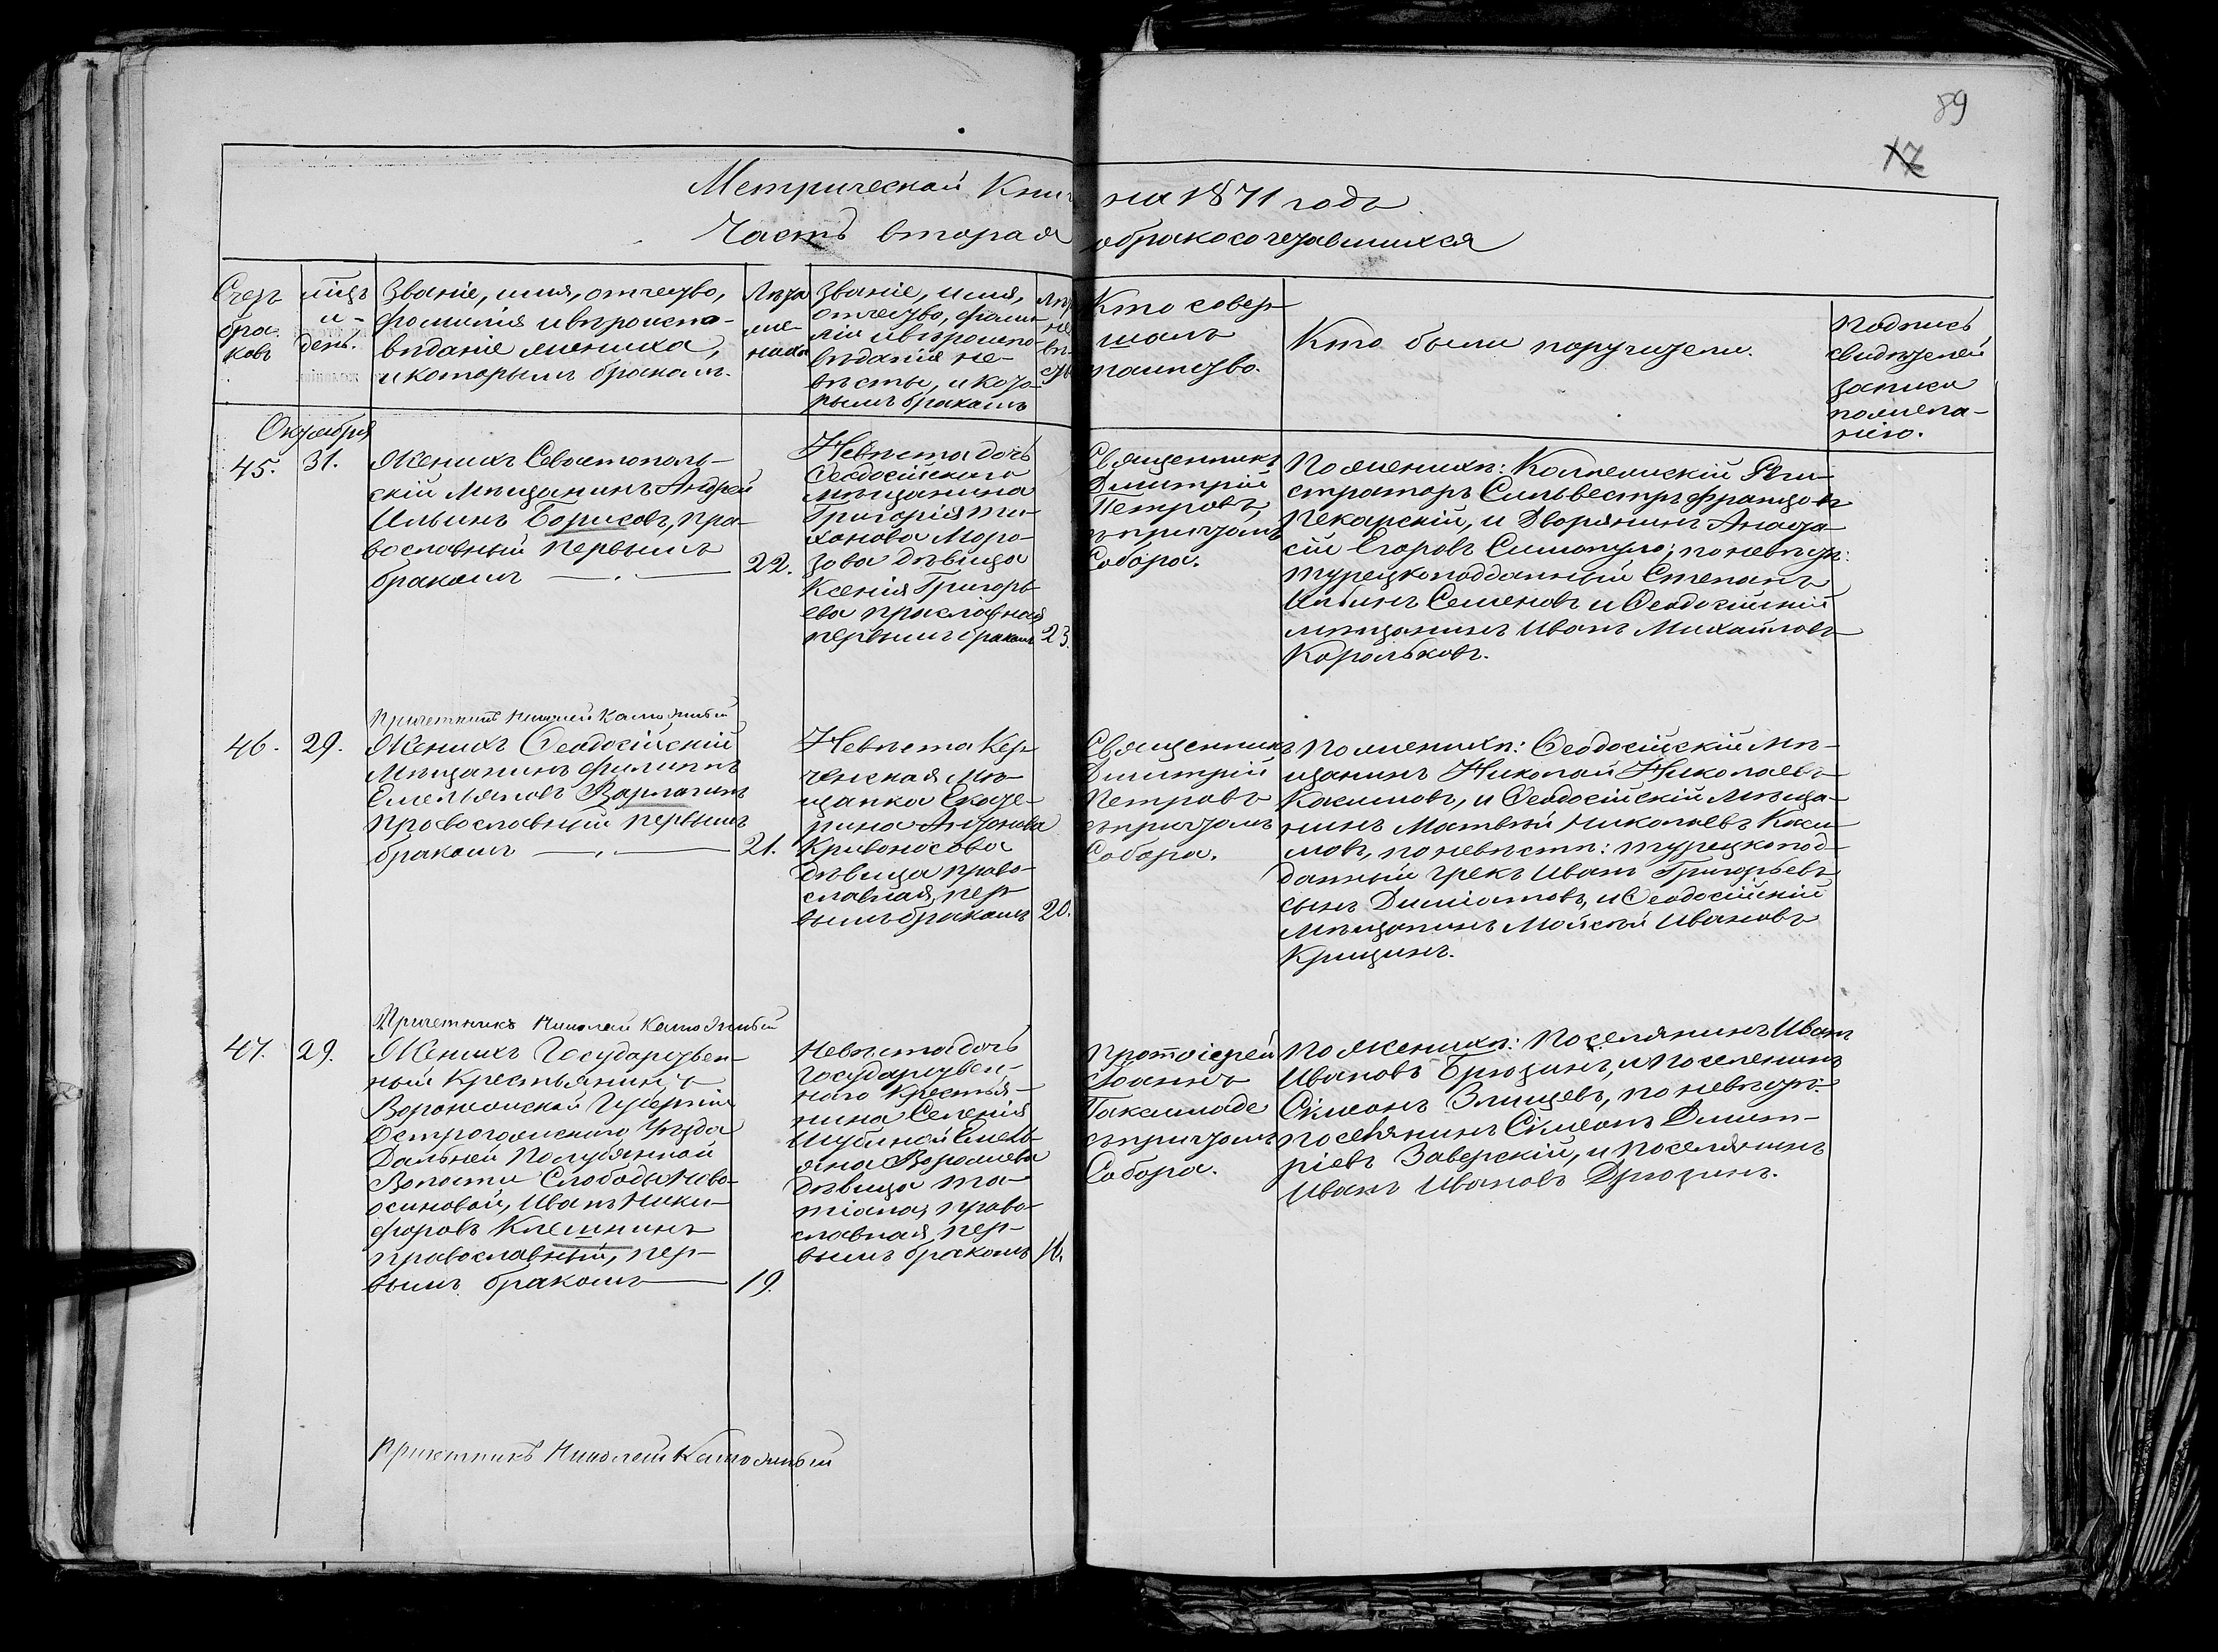 89
17
Метрической Книги на 1871 годъ
Часть вторая о бракосочетавшихся
Счетъ
бра-
ковъ
мѣсяцъ
и
день.
Званіе, имя, отчество,
фамилія и вѣроиспо-
вѣданіе жениха,
и которымъ бракомъ.
Лѣта
же-
ниха
Званіе, имя,
отчество, фами-
лія и вѣроиспо-
вѣданія не-
вѣсты, и кото-
рымъ бракомъ
Лѣт
не
вѣ
сты
Кто совер-
шалъ
таинство.
Кто были поручители.
Подпись
свидѣтелей
записи
по желa-
нію.
Октября
45.
31.
Женихъ Севастополь-
скій Мѣщанинъ Андрей
Ильинъ Борисовъ, пра-
вославный первымъ
бракомъ
22.
Невѣста дочь
Феодосійскаго
Мѣщанина
Григорія Ти-
ханова Моро-
зова дѣвица
Ксенія Григорь-
ева православная
первымъ бракомъ
23.
Священникъ
Димитрій
Петровъ
съ причтомъ
Собора.
По женихѣ: Коллежскій Реги-
страторъ Сильвестръ Францовъ
Пекарскій, и Дворянинъ Анаста-
сій Егоровъ Симопуло; по невѣстѣ:
турецкоподданный Степанъ
Ильинъ Семеновъ и Феодосійскій
мѣщанинъ Иванъ Михайловъ
Корольковъ.
Причетникъ Николай
46.
29.
Женихъ Феодосійскій
Мѣщанинъ Филиппъ
Емельяновъ
православный первымъ
бракомъ
21.
Невѣста Кер-
ченская Мѣ-
щанка Екате-
рина Антонова
Кривоносова
дѣвица право-
славная, пер-
вымъ бракомъ
20.
Священникъ
Димитрій
Петровъ
съ причтомъ
Собора.
По женихѣ: Феодосійскій Мѣ-
щанинъ Николай Николаевъ
Касимовъ, и Феодосійскій Мѣща-
нинъ Матвѣй Николаевъ Каси-
мовъ, по невѣстѣ: турецкопод-
данный грекъ Иванъ Григорьевъ
сынъ и Феодосійскій
Мѣщанинъ Мойсей Ивановъ
Крицинъ.
Причетникъ Николай
47.
29.
Женихъ Государствен-
ный Крестьянинъ,
Воронежской Губерніи
Острогожскаго Уѣзда
Дальней Полубянской
Волости Слободы Ново-
осиновой, Иванъ Ники-
форовъ Клешнинъ
православный, пер-
вымъ бракомъ
19.
Невѣста дочь
Государствен-
наго Крестья-
нина Селенія
Шубиной Емель-
яна
дѣвица Та-
тіана, право-
славная, пер-
вымъ бракомъ
16.
Протоіерей
Іоаннъ
съ причтомъ
Собора.
По женихѣ: Поселянинъ Иванъ
Ивановъ Брюзинъ, и Поселенинъ
Симеонъ Злищевъ, по невѣстѣ:
поселянинъ Симеонъ Димит-
ріевъ Заверскій, и поселянинъ
Иванъ Ивановъ Дрюзинъ.
Причетникъ Николай